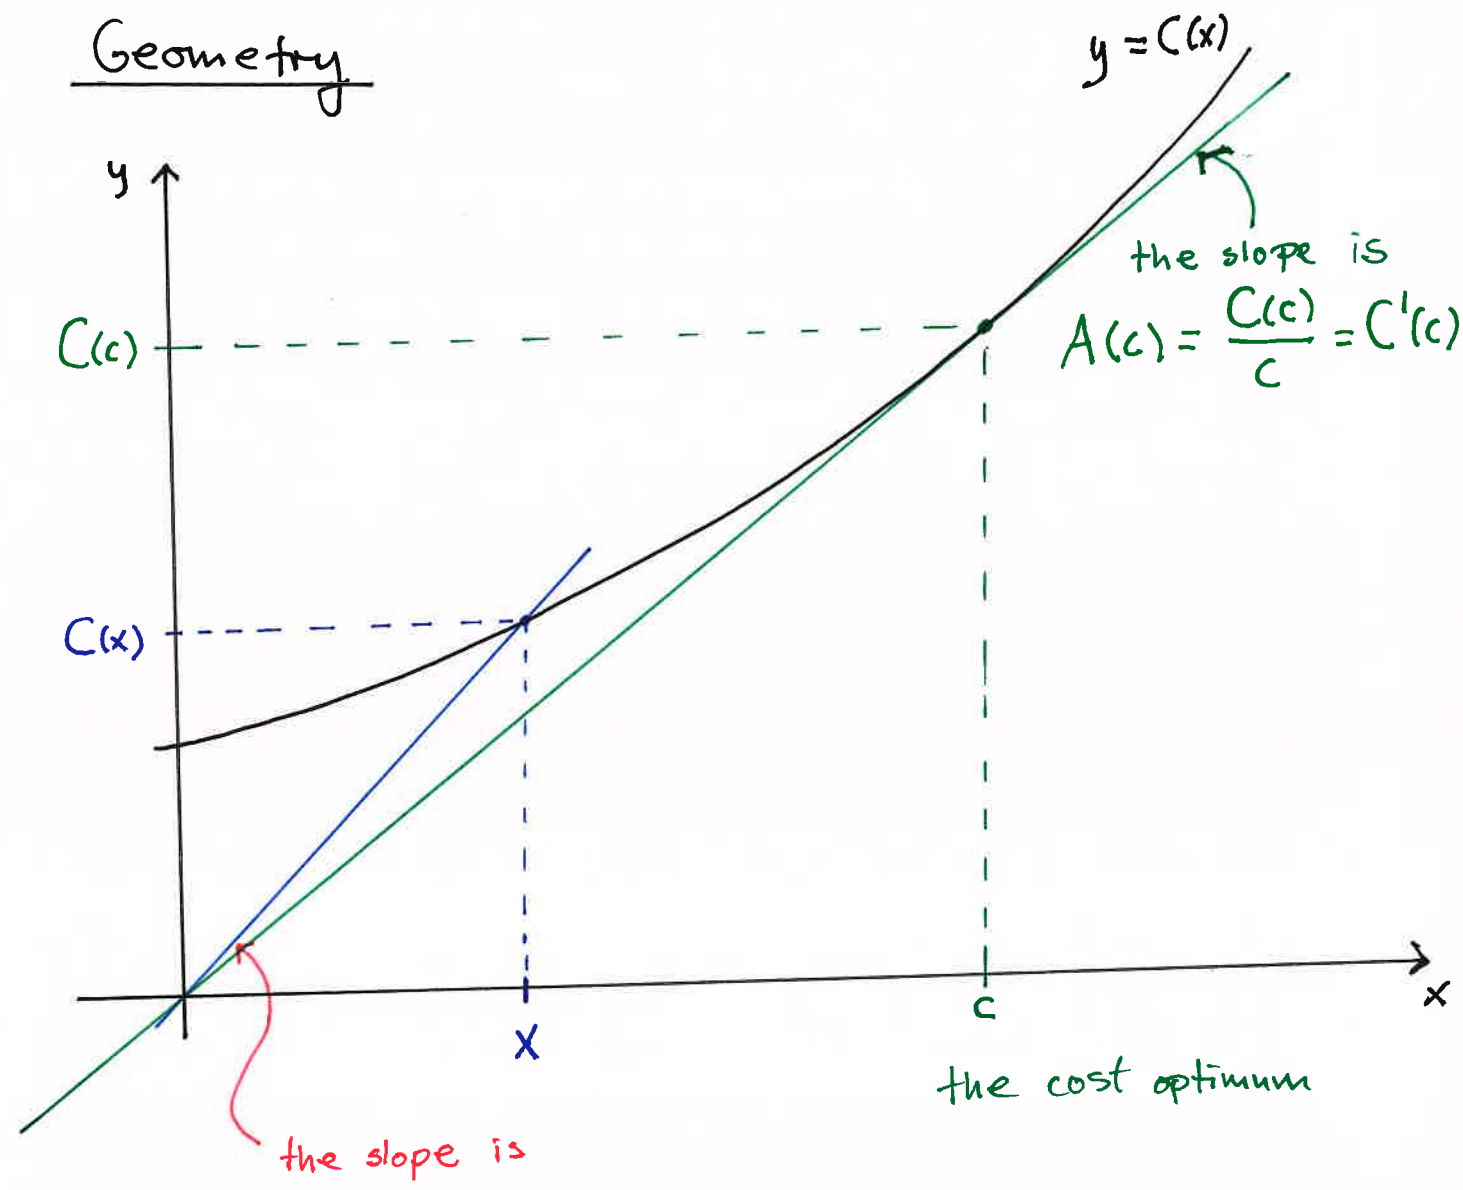 Geometry
y = C(x)
y
the slope is
C(c)
A(c) = C(c)/c = C'(c)
C(x)
x
c
x
the cost optimum
the slope is